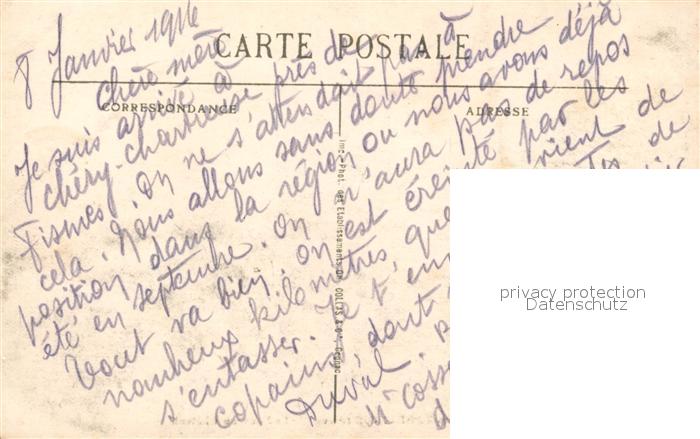 8 Janvier 1916
CARTE POSTALE
CORRESPONDANCE
ADRESSE
Chère mère
Je suis arrivé à
Chéry-chartreuse près de
Fismes. On ne s'attendait pas à
cela. Nous allons sans doute prendre
position dans la région où nous avons déjà
été en septembre. On n'aura pas de repos
Tout va bien. On est éreinté par les
nombreux kilomètres, que vient de
s'entasser. Je t'
copains, dont
Duval.
Mr
Imp.-Phot. des Etablissements Dr. COLLAS & Cie, Cognac
privacy protection
Datenschutz